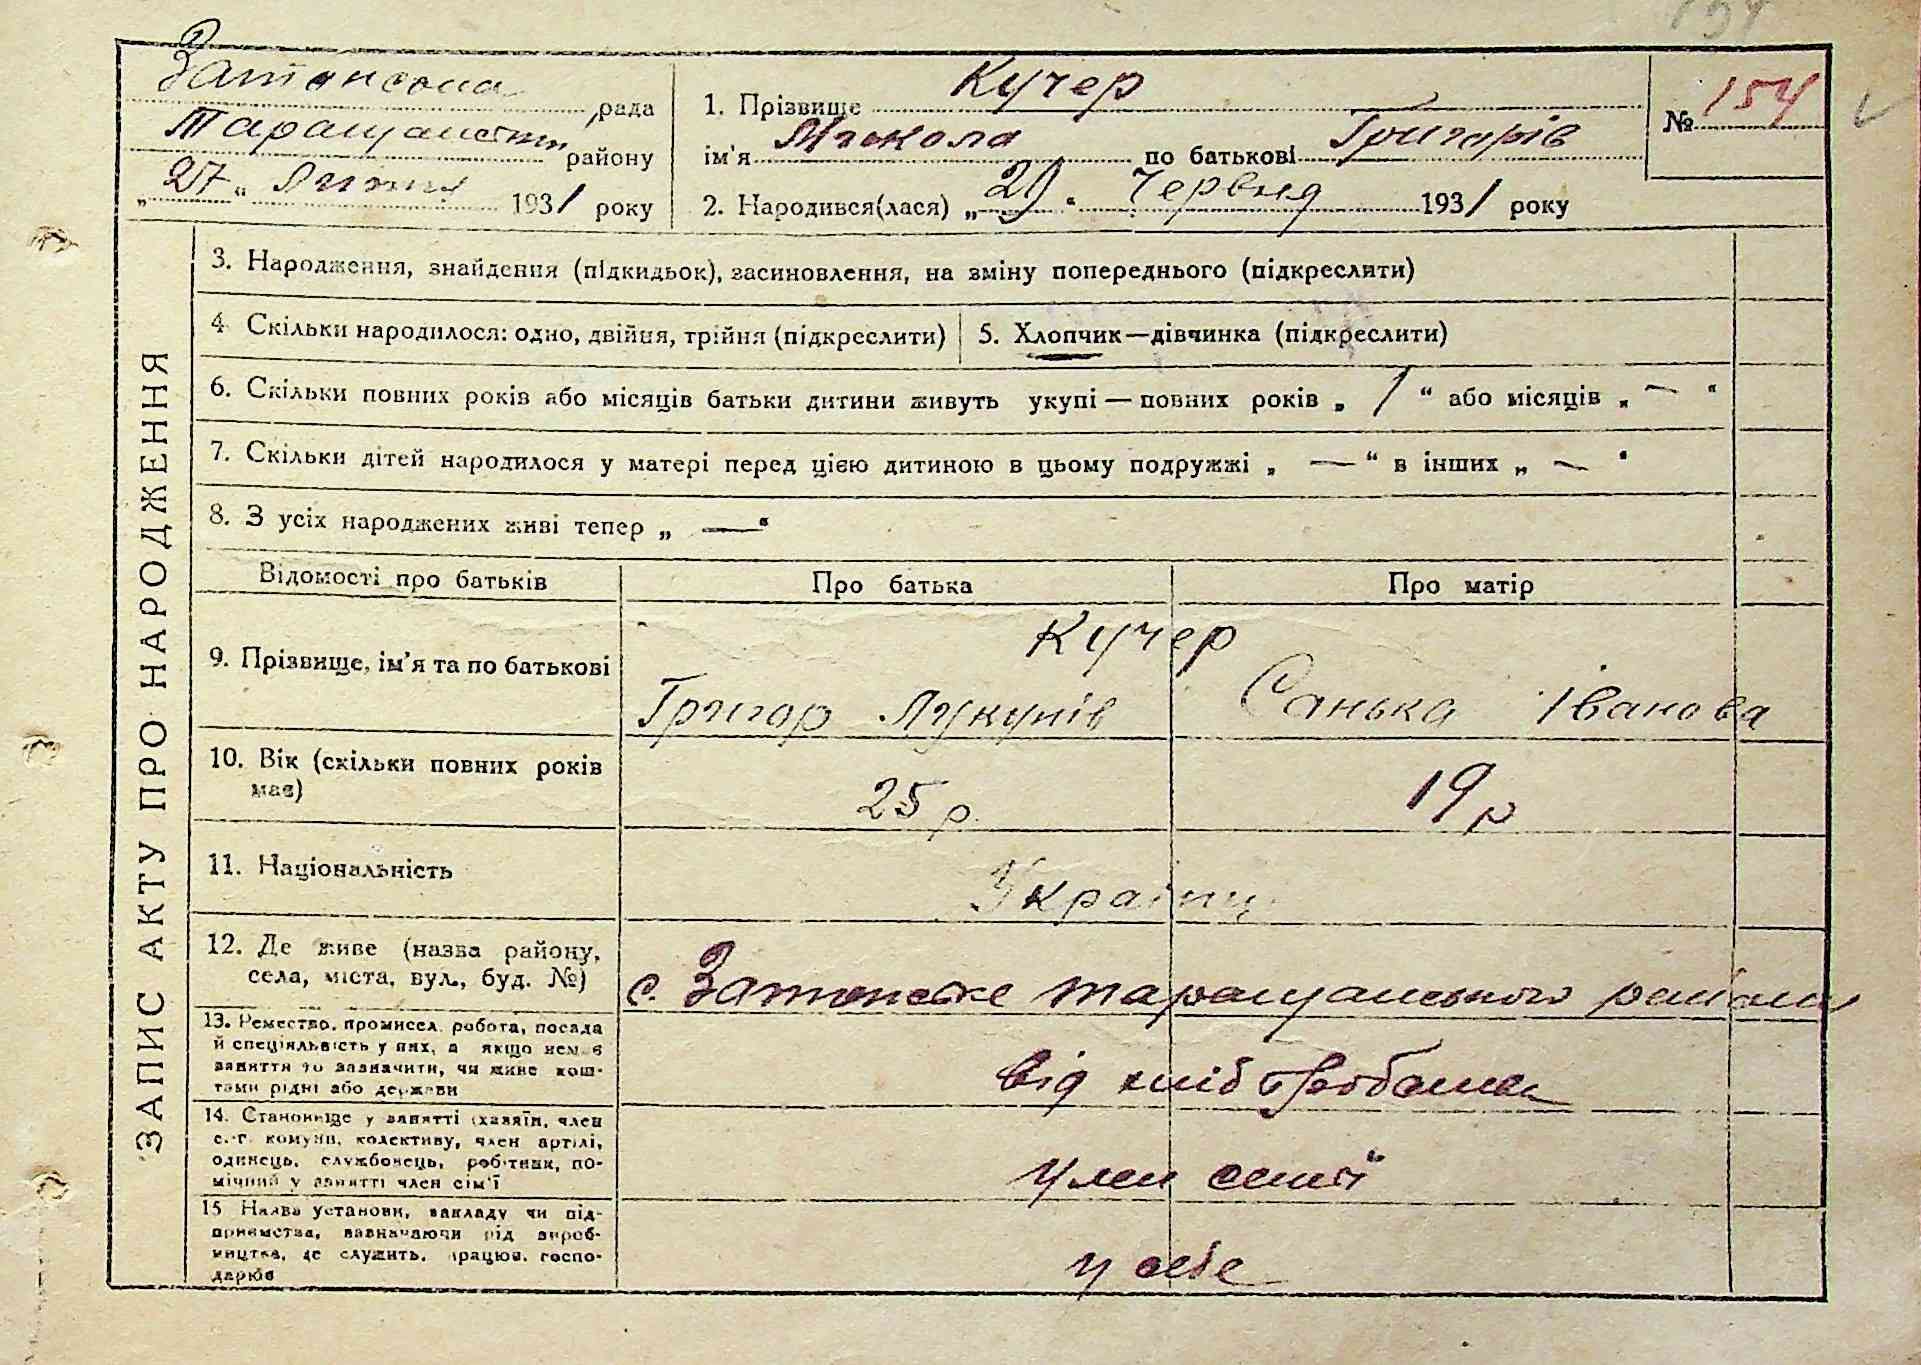 154
Затонська рада
Таращанськ. району
„27“ Липня 1931 року
1. Прізвище Кучер
ім'я Микола по батькові Григорів
2. Народився(лася) „20“ Червня 1931 року
№ 154
ЗАПИС АКТУ ПРО НАРОДЖЕННЯ
3. Народження, знайдення (підкидьок), засиновлення, на зміну попереднього (підкреслити)
4 Скільки народилося: одно, двійня, трійня (підкреслити)
5. Хлопчик—дівчинка (підкреслити)
6. Скільки повних років або місяців батьки дитини живуть укупі — повних років „ 1 “ або місяців „ — “
7. Скільки дітей народилося у матері перед цією дитиною в цьому подружжі „ — “ в інших „ — “
8. З усіх народжених живі тепер „ — “
Відомості про батьків Про батька Про матір
Кучер
9. Прізвище, ім'я та по батькові
Григор Санька Іванова
10. Вік (скільки повних років
має)
25 р 19 р
11. Національність
Українц
12. Де живе (назва району,
села, міста, вул., буд. №)
с. Затонське Таращанського району
13. Ремество, промисел, робота, посада
й спеціяльність у них, а якщо немає
заняття то зазначити, чи живе кош-
тами рідні або держави
від хліборобства
14. Становище у занятті (хазяїн, член
с.-г. комуни, колективу, член артілі,
одинець, службовець, робітник, по-
мічний у занятті член сім'ї
член семії
15 Назва установи, закладу чи під-
приємства, зазначаючи рід вироб-
ництва, де служить, працює, госпо-
дарює
у себе